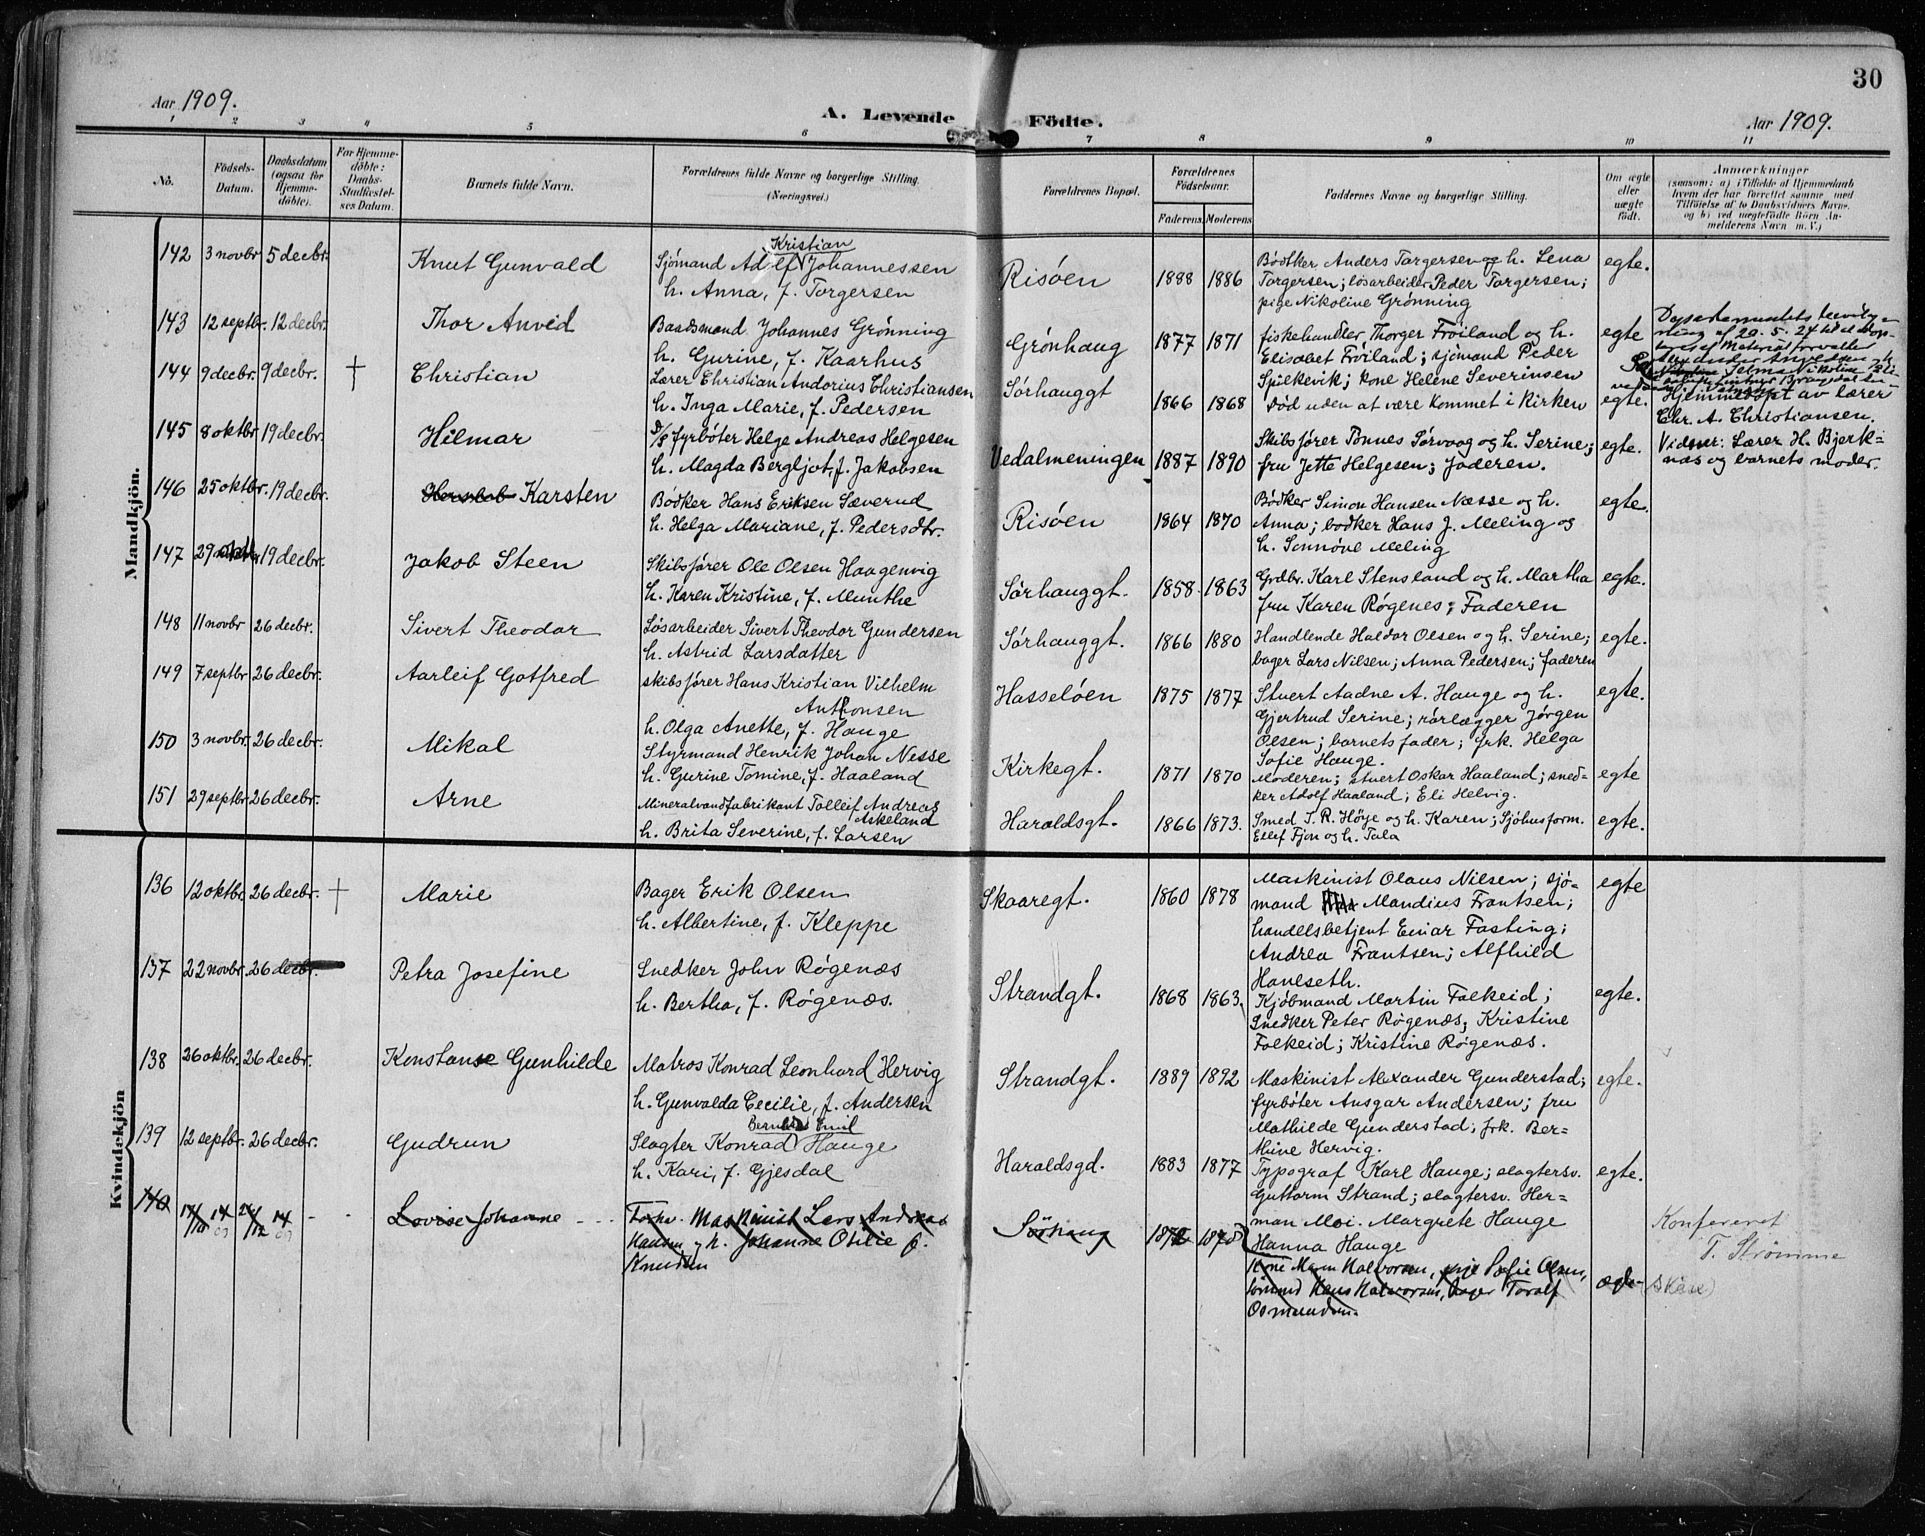 30
Aar 1909.
A. Levende Födte.
Aar 1909.
1 2 3 4 5 6 7 8 9 10 11
No.
Födsels-
Datum.
Daabsdatum
(ogsaa for
Hjemme-
döbte).
For Hjemme-
döbte:
Daabs-
Stadfæstel-
ses Datum.
Barnets fulde Navn.
Forældrenes fulde Navne og borgerlige Stilling.
(Næringsvei.)
Forældrenes Bopæl.
Forældrenes
Födselsaar.
Faderens. Moderens.
Faddernes Navne og borgerlige Stilling.
Om ægte
eller
uægte
födt.
Anmærkninger
(saasom: a) i Tilfælde af Hjemmedaab
hvem der har forrettet samme med
Tilföielse af to Daabsvidners Navne,
og b) ved uægtefödte Börn An-
melderens Navn m. V.)
Mandkjön.
142 3 novbr 5 decbr. Knut Gunvald
Kristian
Sjømand Adolf Johannessen
h. Anna, f. Torgersen
Risöen 1888 1886
Bödtker Anders Torgersen og h. Lena
Torgersen; løsarbeider Peder Torgersen;
pige Nikoline Grønning
egte.
143 12 septbr. 12 decbr. Thor Anvid
Baadsmand Johannes Grønning
h. Gurine, f. Kaarhus
Grönhaug 1877 1871
fiskehandler Thorger Fröiland og h.
Elisabet Fröiland; sjömand Peder
Spilkevik; kone Helene Severinsen
egte
144 9 decbr. 9 decbr. † Christian
Lærer Christian Andorius Christiansen
h. Inga Marie, f. Pedersen
Sörhauggt 1866 1868
död uden at være kommet i kirken
egte.
Hjemmedöpt av lærer
Chr. A. Christiansen.
Vidner: Lærer H. Bjerk=
næs og barnets moder.
145 8 oktbr 19 decbr. Hilmar
D/s fyrböter Helge Andreas Helgesen
h. Magda Bergljot, f. Jakobsen
Vedalmeningen 1887 1890
Skibsfører Tønnes Sørvaag og h. Serine;
fru Jette Helgesen; Faderen.
egte.
146 25 oktbr. 19 decbr. Karsten
Bödker Hans Eriksen Sæverud
h. Helga Mariane, f. Pedersdtr.
Risöen 1864 1870
Bödker Simon Hansen Næsse og h.
Anna; bödker Hans J. Meling og
h. Sonnöve Meling
egte.
147 29 19 decbr. Jakob Steen
Skibsfører Ole Olsen Haagenvig
h. Karen Kristine, f. Munthe
Sørhauggt. 1858 1863
Grdbr. Karl Stensland og h. Martha
fru Karen Røgenes; Faderen
egte.
148 11 novbr 26 decbr. Sivert Theodor
Løsarbeider Sivert Theodor Gundersen
h. Astrid Larsdatter
Sørhauggt. 1866 1880
Handlende Haldor Olsen og h. Serine;
bager Lars Nilsen; Anna Pedersen; faderen
egte.
149 7 septbr 26 decbr. Aarleif Gotfred
skibsfører Hans Kristian Vilhelm
Antonsen
h. Olga Anette, f. Hauge
Hasselöen 1875 1877
Stuert Aadne A. Hauge og h.
Gjertrud Serine; rørlægger Jørgen
Olsen; barnets fader; frk. Helga
Sofie Hauge.
egte.
150 3 novbr. 26 decbr. Mikal
Styrmand Henrik Johan Nesse
h. Gurine Tomine, f. Haaland
Kirkegt. 1871 1870
Moderen; stuert Oskar Haaland; sned-
ker Adolf Haaland; Eli Helvig.
egte
151 29 septbr 26 decbr. Arne
Mineralvandfabrikant Tolleif Andreas
Askeland
h. Brita Severine, f. Larsen
Haraldsgt. 1866 1873.
Smed T. R. Höye og h. Karen; Sjöhusform.
Ellef Fjon og h. Tala
egte.
Kvindekjön
136 12 oktbr. 26 decbr. † Marie
Bager Erik Olsen
h. Albertine, f. Kleppe
Skaaregt. 1860 1878
Maskinist Olaus Nilsen; sjö-
mand Mandius Frantsen;
handelsbetjent Einar Fasting;
Andrea Frantsen; Alfhild
Hanlseth.
egte
137 22 novbr. 26 decbr. Petra Josefine
Snedker John Røgenæs
h. Bertha, f. Røgenæs.
Strandgt. 1868 1863.
Kjöbmand Martin Falkeid;
Snedker Peter Rögenæs; Kristine
Falkeid; Kristine Rögenæs.
egte.
138 26 oktbr. 26 decbr. Konstanse Gunhilde
Matros Konrad Leonhard Hervig
h. Gunvalda Cecilie, f. Andersen
Strandgt. 1889 1892
Maskinist Alexander Gunderstad;
fyrböter Ansgar Andersen; fru
Mathilde Gunderstad; frk. Ber=
thine Hervig.
egte.
139 12 septbr. 26 decbr. Gudrun
Emil
Slagter Konrad Hauge
h. Kari, f. Gjesdal
Haraldsgd. 1883 1877
Typograf Karl Hauge; slagtersv.
Guttorm Strand; slagtersv. Her=
man Moi. Margrete Hauge
Hanna Hauge
egte.
140 Lovise Johanne
Maskinist Lars Andreas
Hansen og h. Johanne Otilie f.
Knudsen
Sörhaug 1872 1878
Kone Maren Halvorsen, pige Sofie Olsen,
sömand Hans Halvorsen, bager Toralf
Osmundsen.
ægte
Konfereret
T. Strömme
(Skåre)